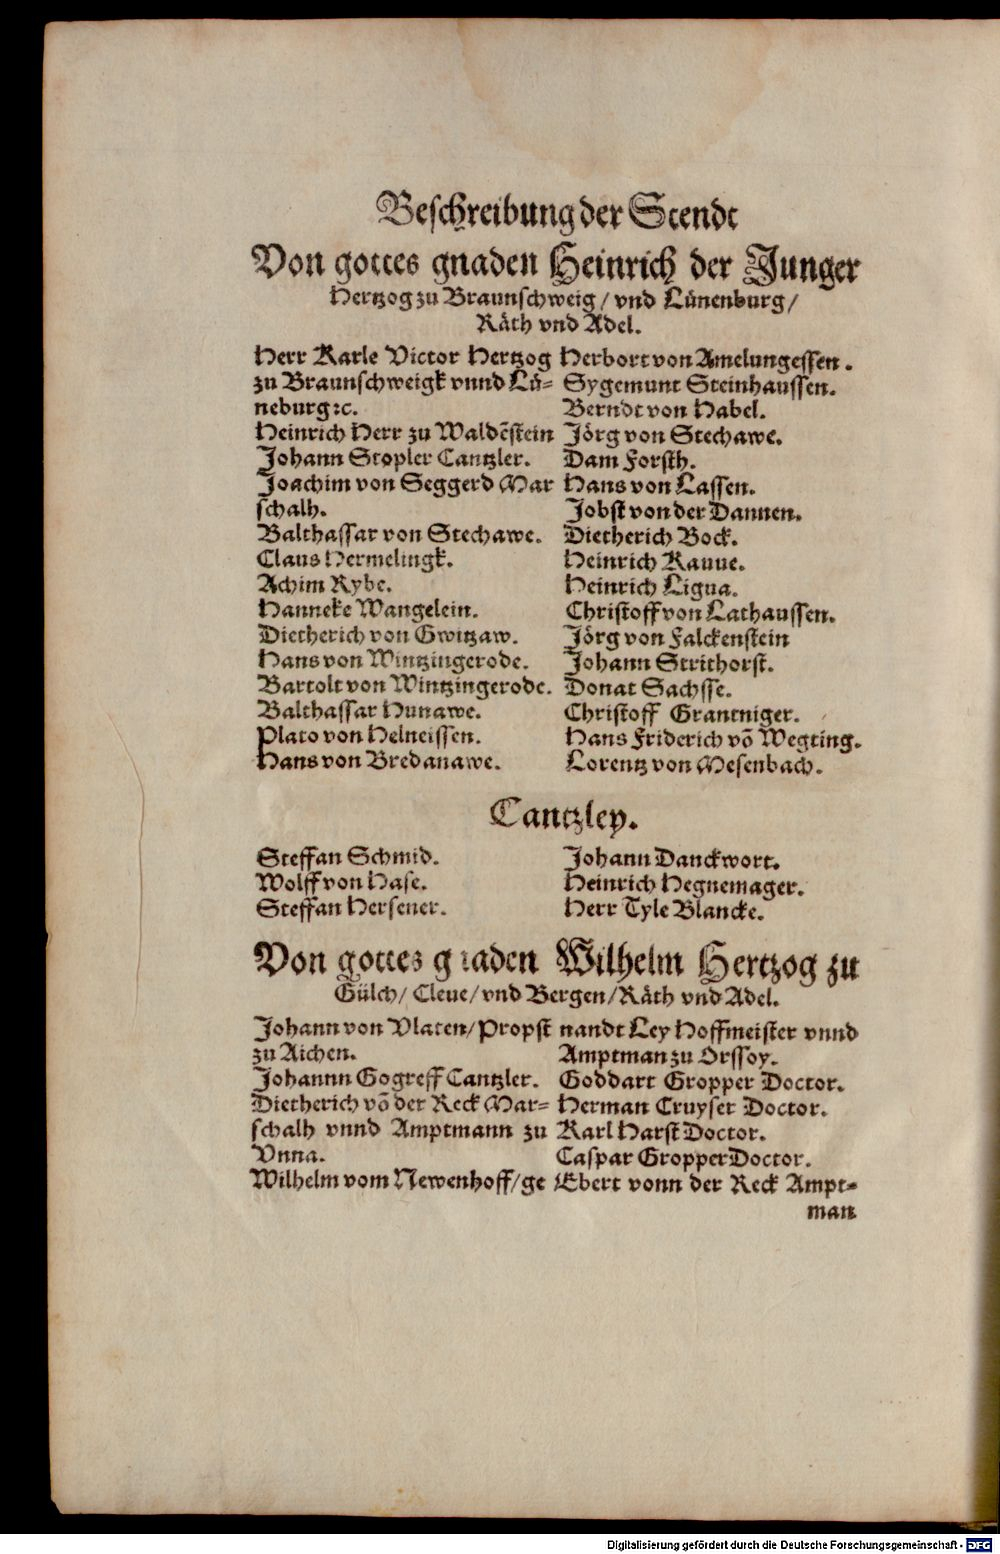 Beschreibung der Stendt
Von gottes gnaden Heinrich der Junger
Hertzog zu Braunschweig / vnd Lünenburg /
Räth vnd Adel.
Herr Karle Victor Hertzog
zu Braunschweigk vnnd Lü-
neburg ꝛc.
Heinrich Herr zu Waldẽstein
Johann Stopler Cantzler.
Joachim von Seggerd Mar
schalh.
Balthassar von Stechawe.
Claus Hermelingk.
Achim Rybe.
Hanneke Wangelein.
Dietherich von Gwitzaw.
Hans von Wintzingerode.
Bartolt von Wintzingerode.
Balthassar Hunawe.
Plato von Helneissen.
Hans von Bredanawe.
Herbort von Amelungessen.
Sygemunt Steinhaussen.
Berndt von Habel.
Jörg von Stechawe.
Dam Forsth.
Hans von Lassen.
Jobst von der Dannen.
Dietherich Bock.
Heinrich Rauue.
Heinrich Ligua.
Christoff von Lathaussen.
Jörg von Falckenstein
Johann Strithorst.
Donat Sachsse.
Christoff Grantniger.
Hans Friderich võ Wegting.
Lorentz von Mesenbach.
Cantzley.
Steffan Schmid.
Wolff von Hase.
Steffan Hersener.
Johann Danckwort.
Heinrich Hegnemager.
Herr Tyle Blancke.
Von gottes gnaden Wilhelm Hertzog zu
Gülch / Cleue / vnd Bergen / Räth vnd Adel.
Johann von Vlaten / Propst
zu Aichen.
Johannn Gogreff Cantzler.
Dietherich võ der Reck Mar-
schalh vnnd Amptmann zu
Vnna.
Wilhelm vom Newenhoff / ge
nandt Ley Hoffmeister vnnd
Amptman zu Orssoy.
Goddart Gropper Doctor.
Herman Cruyser Doctor.
Karl Harst Doctor.
Caspar Gropper Doctor.
Ebert vonn der Reck Ampt-
man
Digitalisierung gefördert durch die Deutsche Forschungsgemeinschaft - DFG